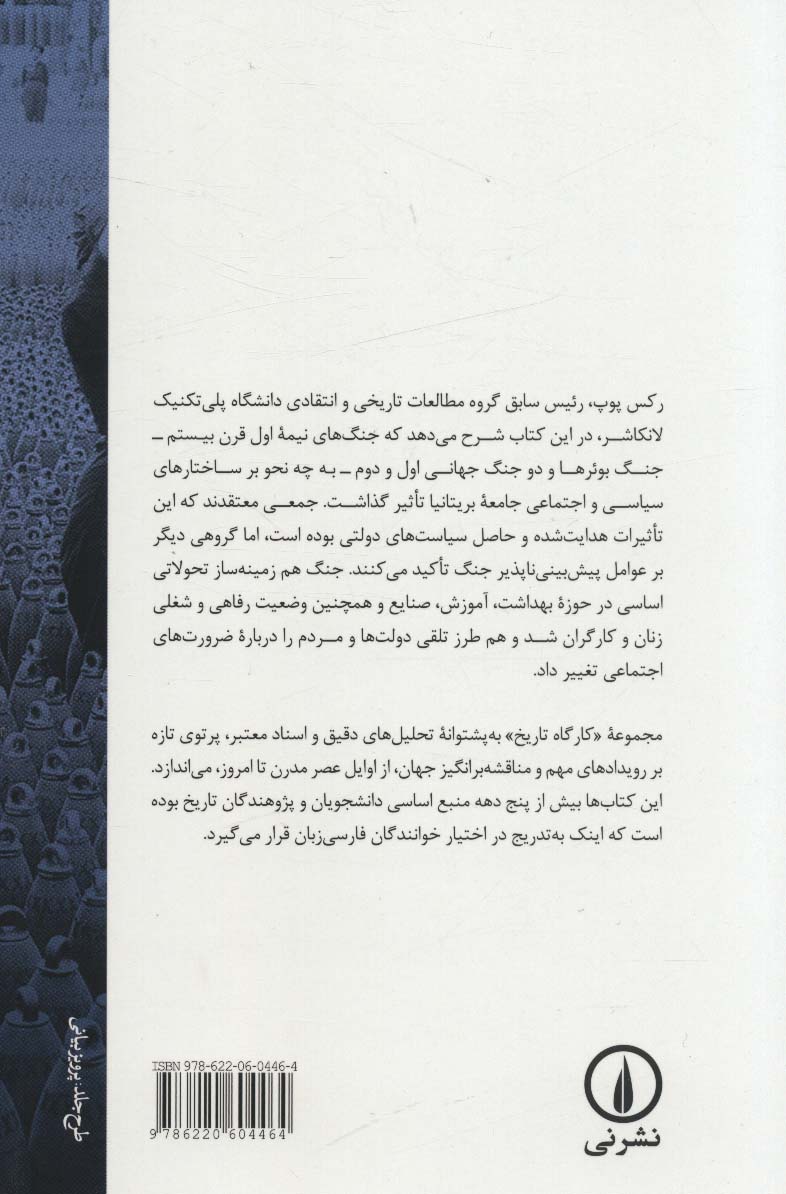 رکس پوپ، رئیس سابق گروه مطالعات تاریخی و انتقادی دانشگاه پلی‌تکنیک
لانکاشر، در این کتاب شرح می‌دهد که جنگ‌های نیمۀ اول قرن بیستم ــ
جنگ بوئرها و دو جنگ جهانی اول و دوم ــ به چه نحو بر ساختارهای
سیاسی و اجتماعی جامعۀ بریتانیا تأثیر گذاشت. جمعی معتقدند که این
تأثیرات هدایت‌شده و حاصل سیاست‌های دولتی بوده است، اما گروهی دیگر
بر عوامل پیش‌بینی‌ناپذیر جنگ تأکید می‌کنند. جنگ هم زمینه‌ساز تحولاتی
اساسی در حوزۀ بهداشت، آموزش، صنایع و همچنین وضعیت رفاهی و شغلی
زنان و کارگران شد و هم طرز تلقی دولت‌ها و مردم را دربارۀ ضرورت‌های
اجتماعی تغییر داد.
مجموعۀ «کارگاه تاریخ» به‌پشتوانۀ تحلیل‌های دقیق و اسناد معتبر، پرتوی تازه
بر رویدادهای مهم و مناقشه‌برانگیز جهان، از اوایل عصر مدرن تا امروز، می‌اندازد.
این کتاب‌ها بیش از پنج دهه منبع اساسی دانشجویان و پژوهندگان تاریخ بوده
است که اینک به‌تدریج در اختیار خوانندگان فارسی‌زبان قرار می‌گیرد.
طرح جلد: پرویز بیانی
ISBN 978-622-06-0446-4
9 786220 604464
نشرنی